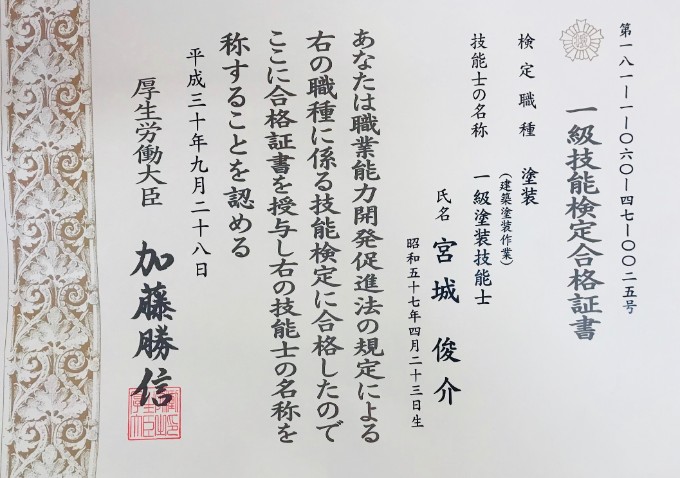 第一八一―一―〇六〇―四七―〇〇二五号
一級技能検定合格証書
検定職種 塗装
(建築塗装作業)
技能士の名称 一級塗装技能士
氏名 宮城 俊介
昭和五十七年四月二十三日生
あなたは職業能力開発促進法の規定による
右の職種に係る技能検定に合格したので
ここに合格証書を授与し右の技能士の名称を
称することを認める
平成三十年九月二十八日
厚生労働大臣 加藤勝信